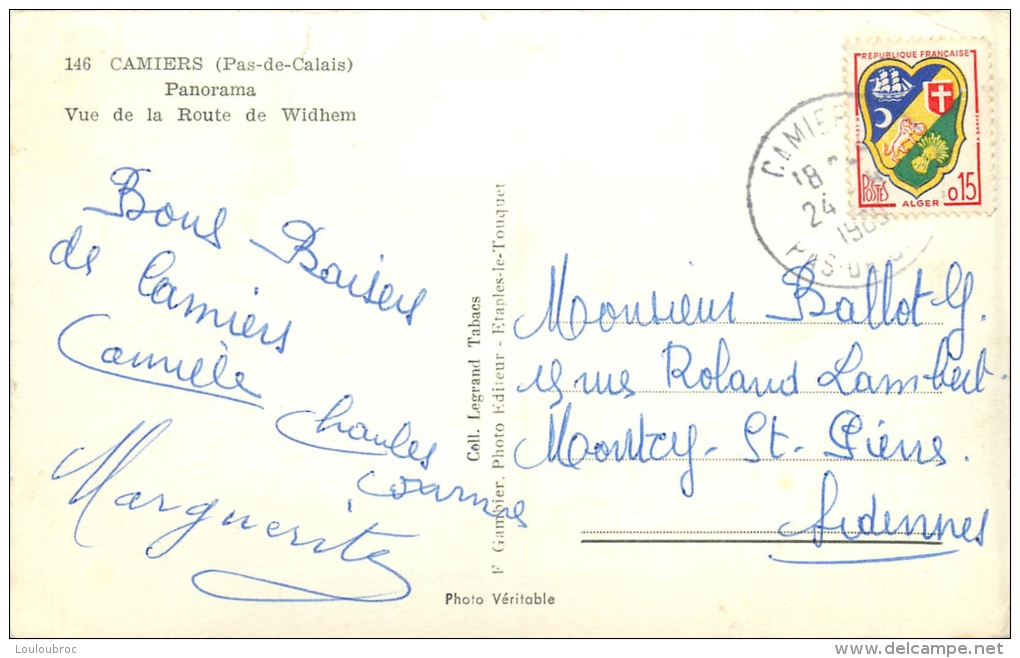 146 CAMIERS (Pas-de-Calais)
Panorama
Vue de la Route de Widhem
Bons Baisers
de Camiers
Camille
Charles
Marguerite
Coll. Legrand Tabacs
F Gambier, Photo Editeur - Etaples-le-Touquet
Photo Véritable
REPUBLIQUE FRANÇAISE
POSTES
ALGER
0,15
CAMIER
18
24
PAS-DE-C
Monsieur Ballot G.
rue Roland Lambert
Montcy-St-Pierre.
Ardennes
Louloubroc
delcampe.net